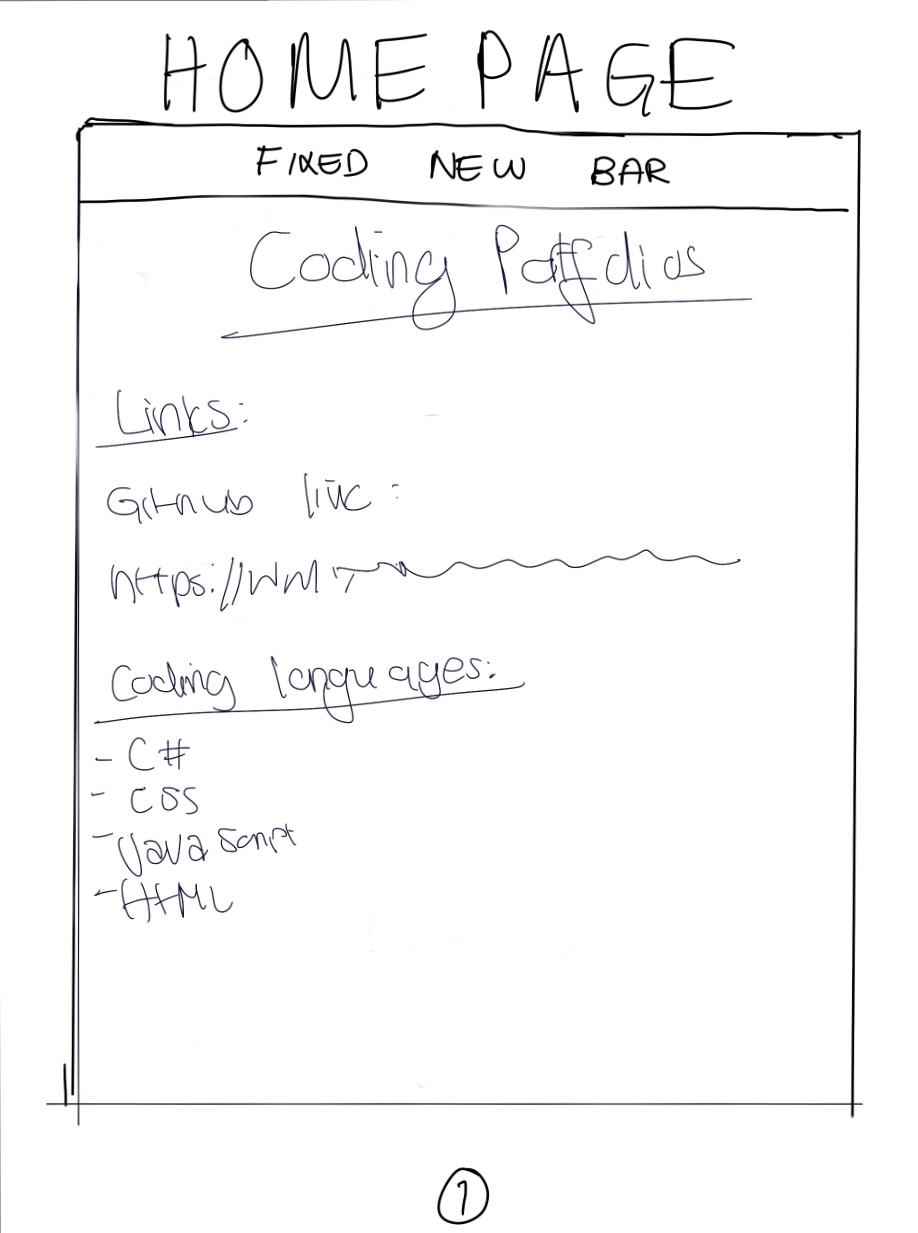 HOME PAGE
FIXED NEW BAR
Coding
Links:
GitHub
https://
Coding languages:
- C#
- CSS
- JavaScript
- HTML
1